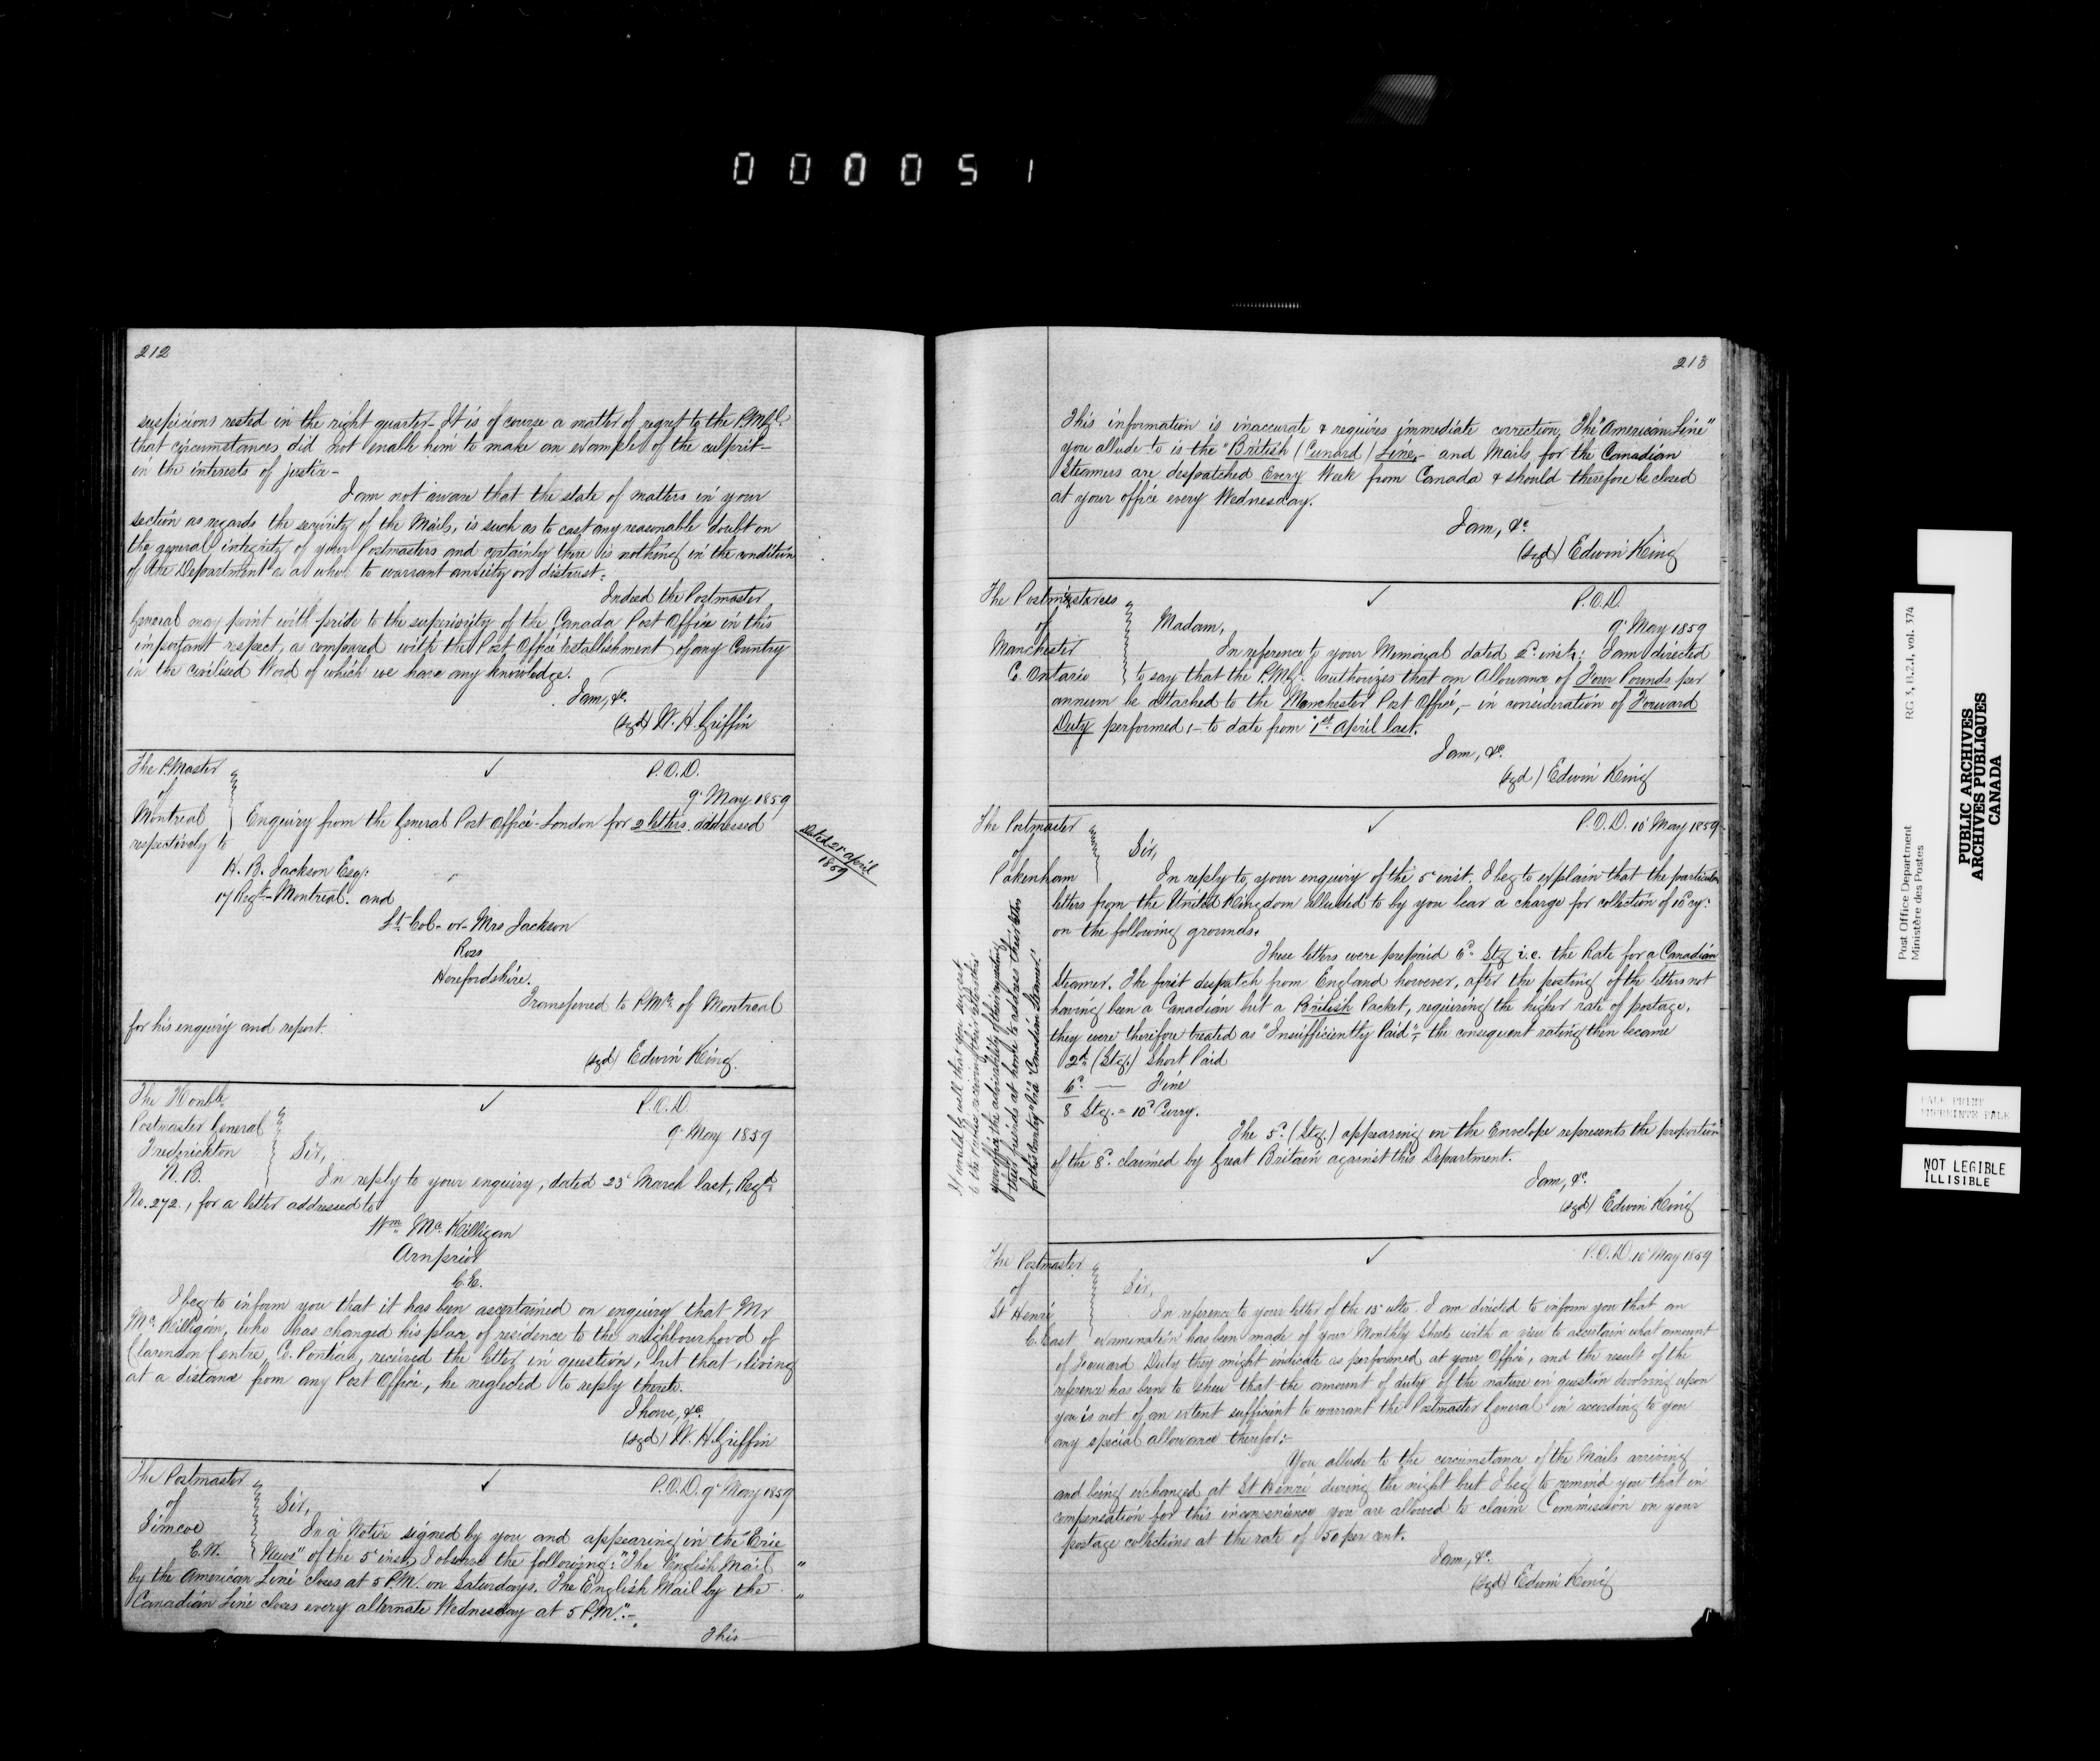 000051
212
suspicions rested in the right quarter - It is of course a matter of regret to the P.M.Gl.
that circumstances did not enable him to make an example of the culprit -
in the interests of justice -
I am not aware that the state of matters in your
section as regards the security of the Mails, is such as to cast any reasonable doubt on
the general integrity of your Postmasters and certainly there is nothing in the condition
of the Department as a whole to warrant anxiety or distrust.
Indeed the Postmaster
General may point with pride to the superiority of the Canada Post Office in this
important respect, as compared with the Post Office Establishment of any Country
in the civilised Word of which we have any knowledge.
I am, &c.
(sgd) W. H. Griffin
The P. Master
of
Montreal
✓ P.O.D.
9 May 1859
Enquiry from the General Post Office - London for 2 letters addressed
respectively to
Dated 21 April
1859
H. B. Jackson Esq:
17 Regt. - Montreal. and
Lt. Col - or - Mrs Jackson
Ross
Herefordshire.
Transferred to P.Mr. of Montreal
for his enquiry and report.
(sgd) Edwin King.
The Honble
Postmaster General
Frederickton
N.B.
✓ P.O.D.
9 May 1859
Sir,
In reply to your enquiry, dated 23 March last, Regd.
No. 272, for a letter addressed to
Wm. Mc.Killigan
Arnprior
C.E.
I beg to inform you that it has been ascertained on enquiry that Mr
Mc.Killigan, who has changed his place of residence to the neighbourhood of
Clarendon Centre, Co. Pontiac, received the letter in question, but that, living
at a distance from any Post Office, he neglected to reply thereto.
I have, &c.
(sgd) W. H. Griffin
The Postmaster
of
Simcoe
C.W.
✓ P.O.D. 9 May 1859
Sir,
In a Notice signed by you and appearing in the "Erie
News" of the 5 inst, I observe the following: "The English Mail "
by the American Line closes at 5 P.M. on Saturdays. The English Mail by the
Canadian Line closes every alternate Wednesday at 5 P.M." - "
This
213
This information is inaccurate & requires immediate correction, The "American Line"
you allude to is the "British (Cunard) Line, - and Mails for the Canadian
Steamers are despatched Every Week from Canada & should therefore be closed
at your office every Wednesday.
I am, &c
(sgd) Edwin King
The Postmistress
of
Manchester
C. Ontario
✓ P.O.D.
9 May 1859
Madam,
In reference to your Memorial dated 2d inst: I am directed
to say that the P.M.G. authorizes that an Allowance of Four Pounds per
annum be attached to the Manchester Post Office, - in consideration of Forward
Duty performed, - to date from 1st April last.
I am, &c.
(sgd) Edwin King
The Postmaster
of
Pakenham
✓ P.O.D. 10 May 1859
Sir,
In reply to your enquiry of the 5 inst. I beg to explain that the particular
letters from the United Kingdom alluded to by you bear a charge for collection of 10 cy:
on the following grounds.
These letters were prepaid 6d. Stg i.e. the Rate for a Canadian
Steamer. The first despatch from England however, after the posting of the letters not
having been a Canadian but a British Packet, requiring the higher rate of postage,
they were therefore treated as "Insufficiently Paid"; the consequent rating then became
2d. (Stg.) Short Paid
6d. — Fine
8 Stg. = 10d Curry.
The 5d. (Stg.) appearing on the Envelope represents the proportion
of the 8d. claimed by Great Britain against this Department.
I am, &c.
(sgd) Edwin King
It would be well that you suggest
to the parties receiving their letters thro'
your office the advisability of their requesting
their friends at home to address their letters
for this Country "Via Canadian Steamer".
The Postmaster
of
St Henri
C. East
✓ P.O.D. 10 May 1859
Sir,
In reference to your letter of the 15 ulto. I am directed to inform you that an
examination has been made of your Monthly Sheets with a view to ascertain what amount
of Forward Duty they might indicate as performed at your Office, and the result of the
reference has been to shew that the amount of duty of the nature in question devolving upon
you is not of an extent sufficient to warrant the Postmaster General in according to you
any special allowance therefor: -
You allude to the circumstance of the Mails arriving
and being exchanged at St Henri during the night but I beg to remind you that in
compensation for this inconvenience you are allowed to claim Commission on your
postage collections at the rate of 50 per cent.
I am, &c.
(sgd) Edwin King
Post Office Department
Ministère des Postes
RG 3, B.2.1, vol. 374
PUBLIC ARCHIVES
ARCHIVES PUBLIQUES
CANADA
PALE PRINT
EMPREINTE PALE
NOT LEGIBLE
ILLISIBLE